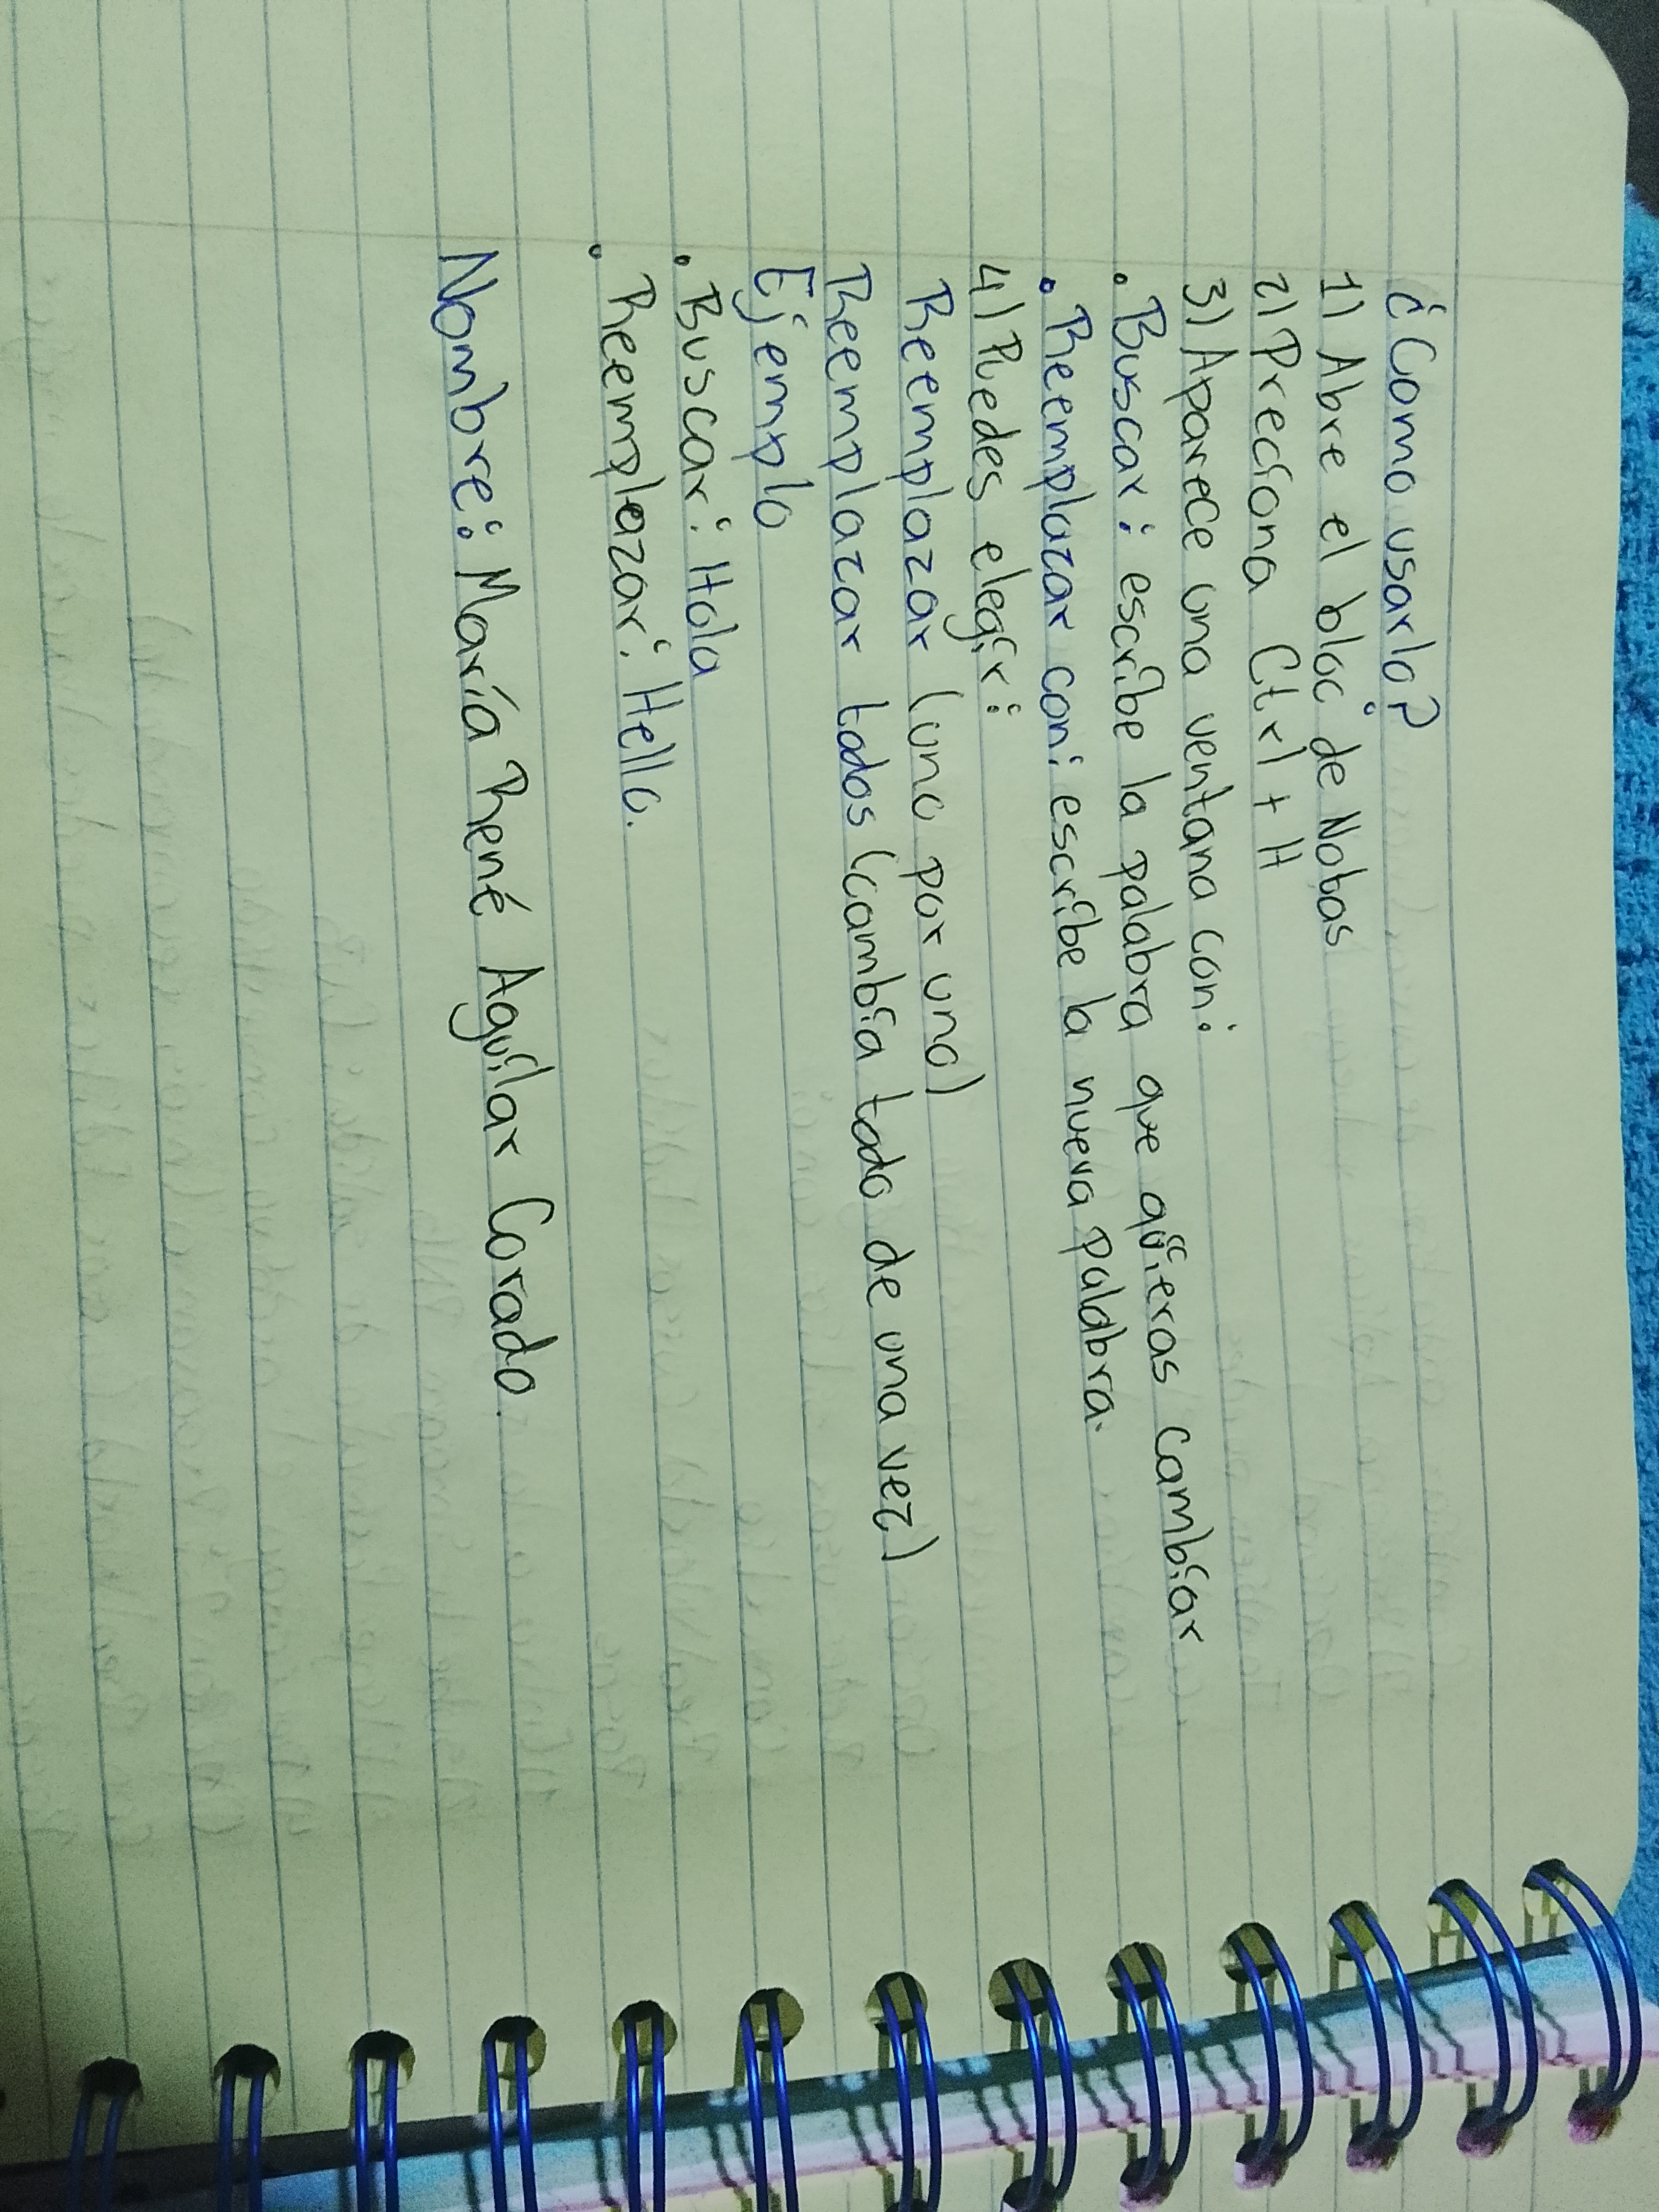 ¿Como usarlo?
1) Abre el bloc de Notas
2) Preciona Ctrl + H
3) Aparece una ventana con:
• Buscar: escribe la palabra que quieras cambiar
• Reemplazar con: escribe la nueva palabra.
4) Puedes elegir:
Reemplazar (uno por uno)
Reemplazar todos (cambia todo de una vez)
Ejemplo
• Buscar: Hola
• Reemplazar: Hello.
Nombre: María René Aguilar Corado.